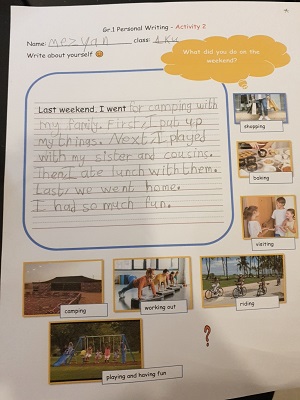 Gr.1 Personal Writing - Activity 2
Name: mezyan class: A.Ku
Write about yourself
What did you do on the
weekend?
Last weekend, I went for camping with
my Panify. First, I put up
my things. Next, I played
with my sister and cousins.
Then, I ate lunch with them.
Last, we went home.
I had so much fun.
shopping
baking
visiting
camping
working out
riding
playing and having fun
?